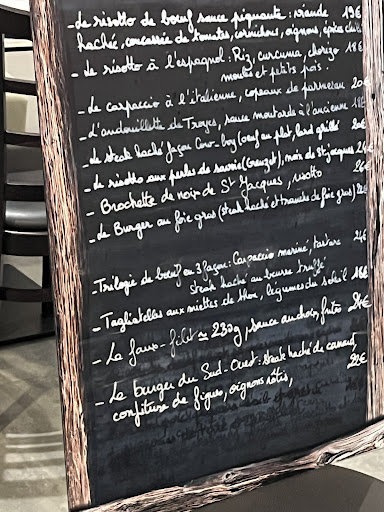 - Le risotto de bœuf sauce piquante : viande 19€
haché, concassée de tomates, cornichons, oignons, épice chili
- Le risotto à l'espagnol : Riz, curcuma, chorizo 19€
moules et petits pois.
- Le carpaccio à l'italienne, copeaux de parmesan 20€
- L'andouillette de Troyes, sauce moutarde à l'ancienne 18€
- Le steak haché façon Cow-boy (oeuf au plat, lard grillé 20€
- Le risotto aux perles de savoie (Crozet), noix de St jacques 24€
- Brochette de noix de St Jacques, risotto 26€
- Le Burger au foie gras (Steak haché et tranche de foie gras) 28€
- Trilogie de boeuf en 3 façon : Carpaccio mariné, tartare 24€
steak haché au beurre truffé
- Tagliatelles aux miettes de thon, légumes du soleil 18€
- Le faux-filet ≃ 230g, sauce au choix, frites 24€
- Le burger du Sud-Ouest : Steak haché de canard,
confiture de figues, oignons rôtis, 22€